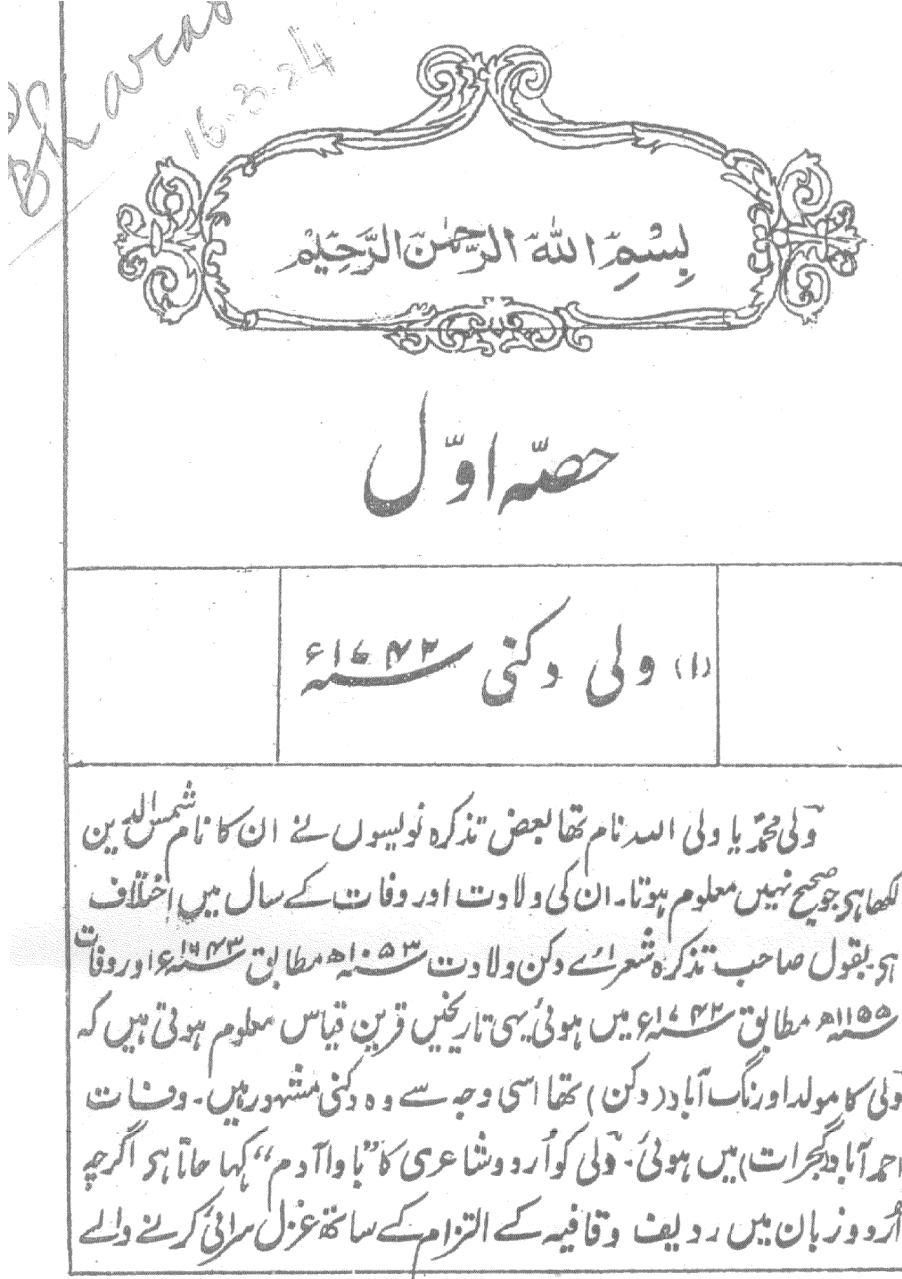 Bharas
16.3.24
بِسْمِ اللهِ الرَّحْمٰنِ الرَّحِيْمِ
حصّہ اوّل
(۱) ولی دکنی ۱۷۴۲ء
ولی محمد یا ولی اللہ نام تھا بعض تذکرہ نویسوں نے ان کا نام شمس الدین
لکھا ہی جو صحیح نہیں معلوم ہوتا۔ ان کی ولادت اور وفات کے سال میں اختلاف
ہی بقول صاحب تذکرہ شعرائے دکن ولادت ۱۰۵۳ھ مطابق ۱۶۴۳ء اور وفات
۱۱۵۵ھ مطابق ۱۷۴۲ء میں ہوئی یہی تاریخیں قرین قیاس معلوم ہوتی ہیں کہ
ولی کا مولد اورنگ آباد (دکن) تھا اسی وجہ سے وہ دکنی مشہور ہیں۔ وفات
احمد آباد (گجرات) میں ہوئی۔ ولی کو اُردو شاعری کا "باوا آدم" کہا جاتا ہی اگرچہ
اُردو زبان میں ردیف و قافیہ کے التزام کے ساتھ غزل سرائی کرنے والے